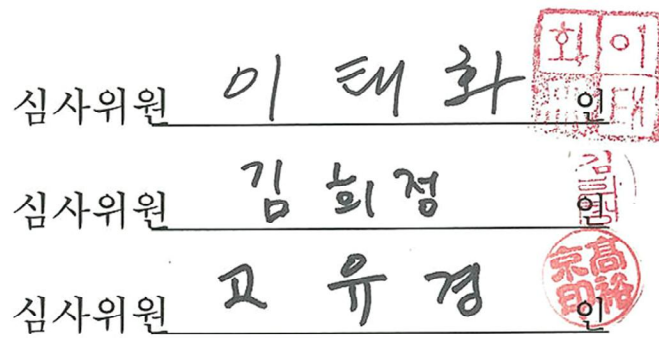 심사위원 이 태 화 인
심사위원 김 희 정 인
심사위원 고 유 경 인